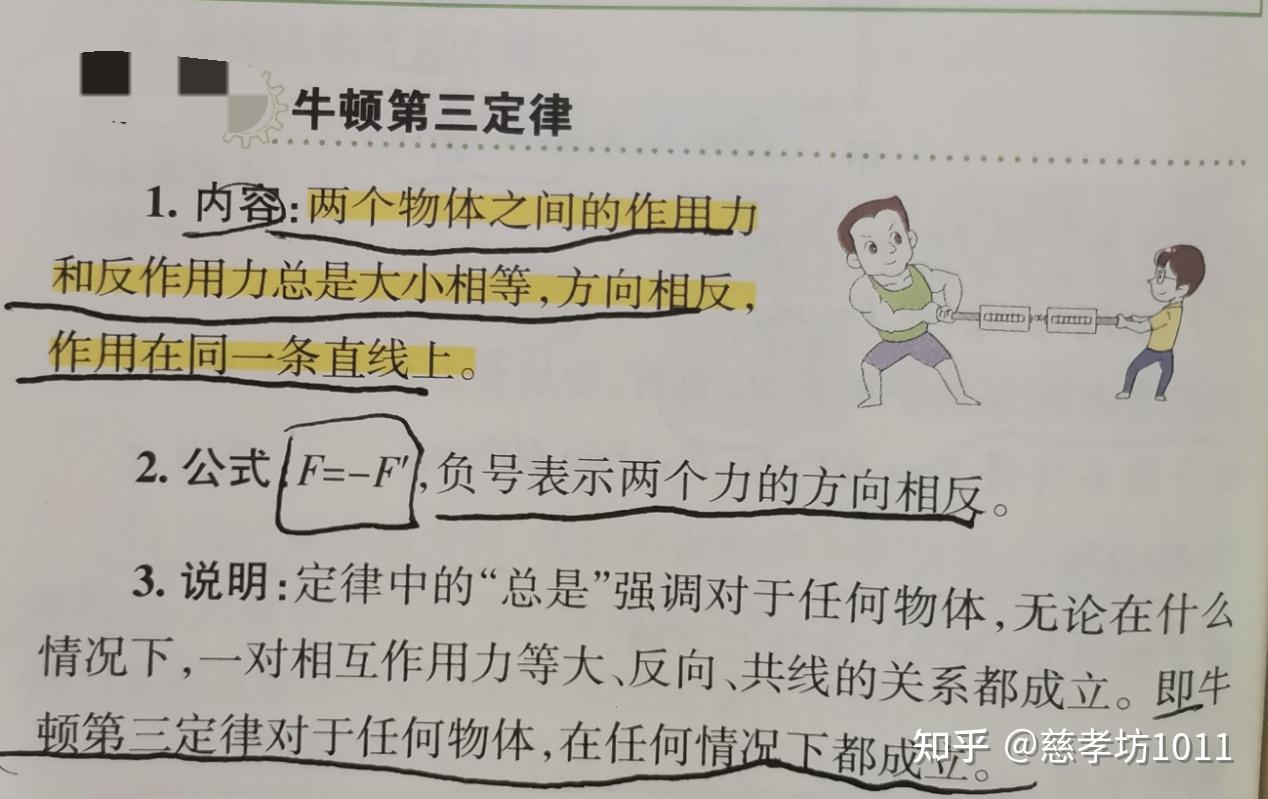 牛顿第三定律
1. 内容:两个物体之间的作用力
和反作用力总是大小相等,方向相反,
作用在同一条直线上。
2. 公式:F=-F′,负号表示两个力的方向相反。
3. 说明:定律中的“总是”强调对于任何物体,无论在什么
情况下,一对相互作用力等大、反向、共线的关系都成立。即牛
顿第三定律对于任何物体,在任何情况下都成立。
知乎 @慈孝坊1011